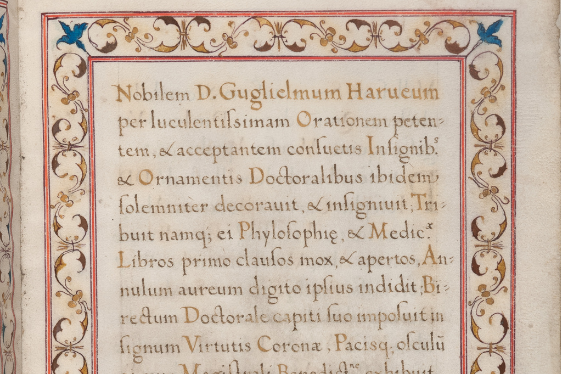 Nobilem D. Guglielmum Harueum
per luculentiſsimam Orationem peten-
tem, & acceptantem conſuetis Inſignib.⁹
& Ornamentis Doctoralibus ibidem,
ſolemniter decorauit, & inſigniuit, Tri-
buit namq; ei Phyloſophię, & Medic.ᵉ
Libros primo clauſos mox, & apertos, An-
nulum aureum digito ipſius indidit, Bi-
rectum Doctorale capiti ſuo impoſuit in
ſignum Virtutis Coronæ, Pacisq, oſculũ
Magiſtrali exhibuit